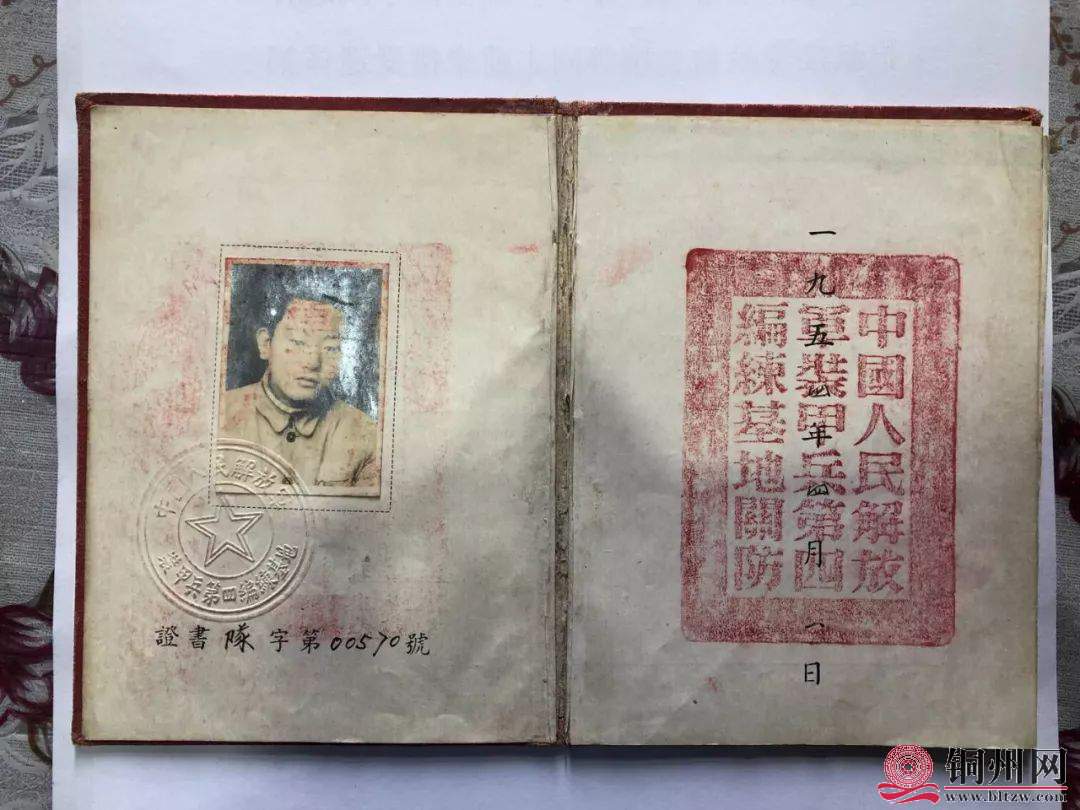 中國人民解放軍
裝甲兵第四編練基地
證書隊字第00570號
中國人民解放
軍裝甲兵第四
編練基地關防
一九五四年四月八日
铜州网
www.bltzw.com